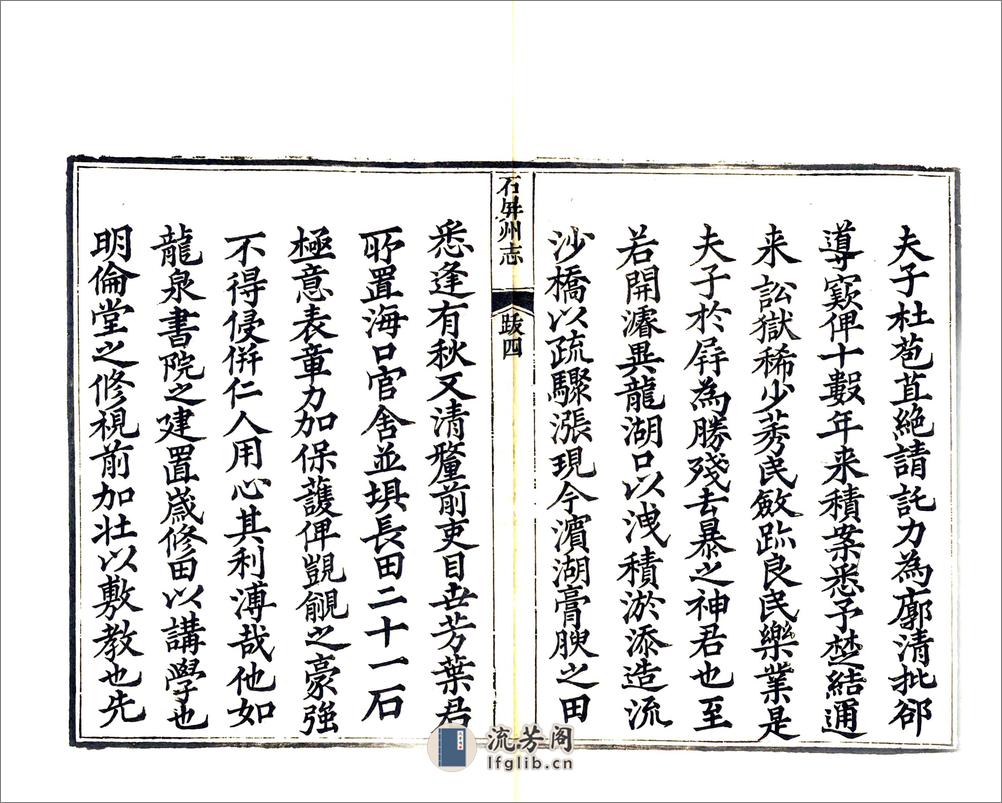 夫子杜苞苴絶請託力為廓清批郤
導窾俾十數年来積案悉予埜結通
来訟獄稀少莠民斂跡良民樂業是
夫子於屛為勝殘去暴之神君也至
若開濬異龍湖口以洩積淤添造流
沙橋以疏驟漲現今濵湖膏腴之田
石屏州志
跋四
悉逢有秋又清釐前吏目世芳葉君
所置海口官舍並埧長田二十一石
極意表章力加保護俾覬覦之豪強
不得侵併仁人用心其利溥哉他如
龍泉書院之建置歲修田以講學也
明倫堂之修視前加壯以敷教也先
流芳阁
lfglib.cn